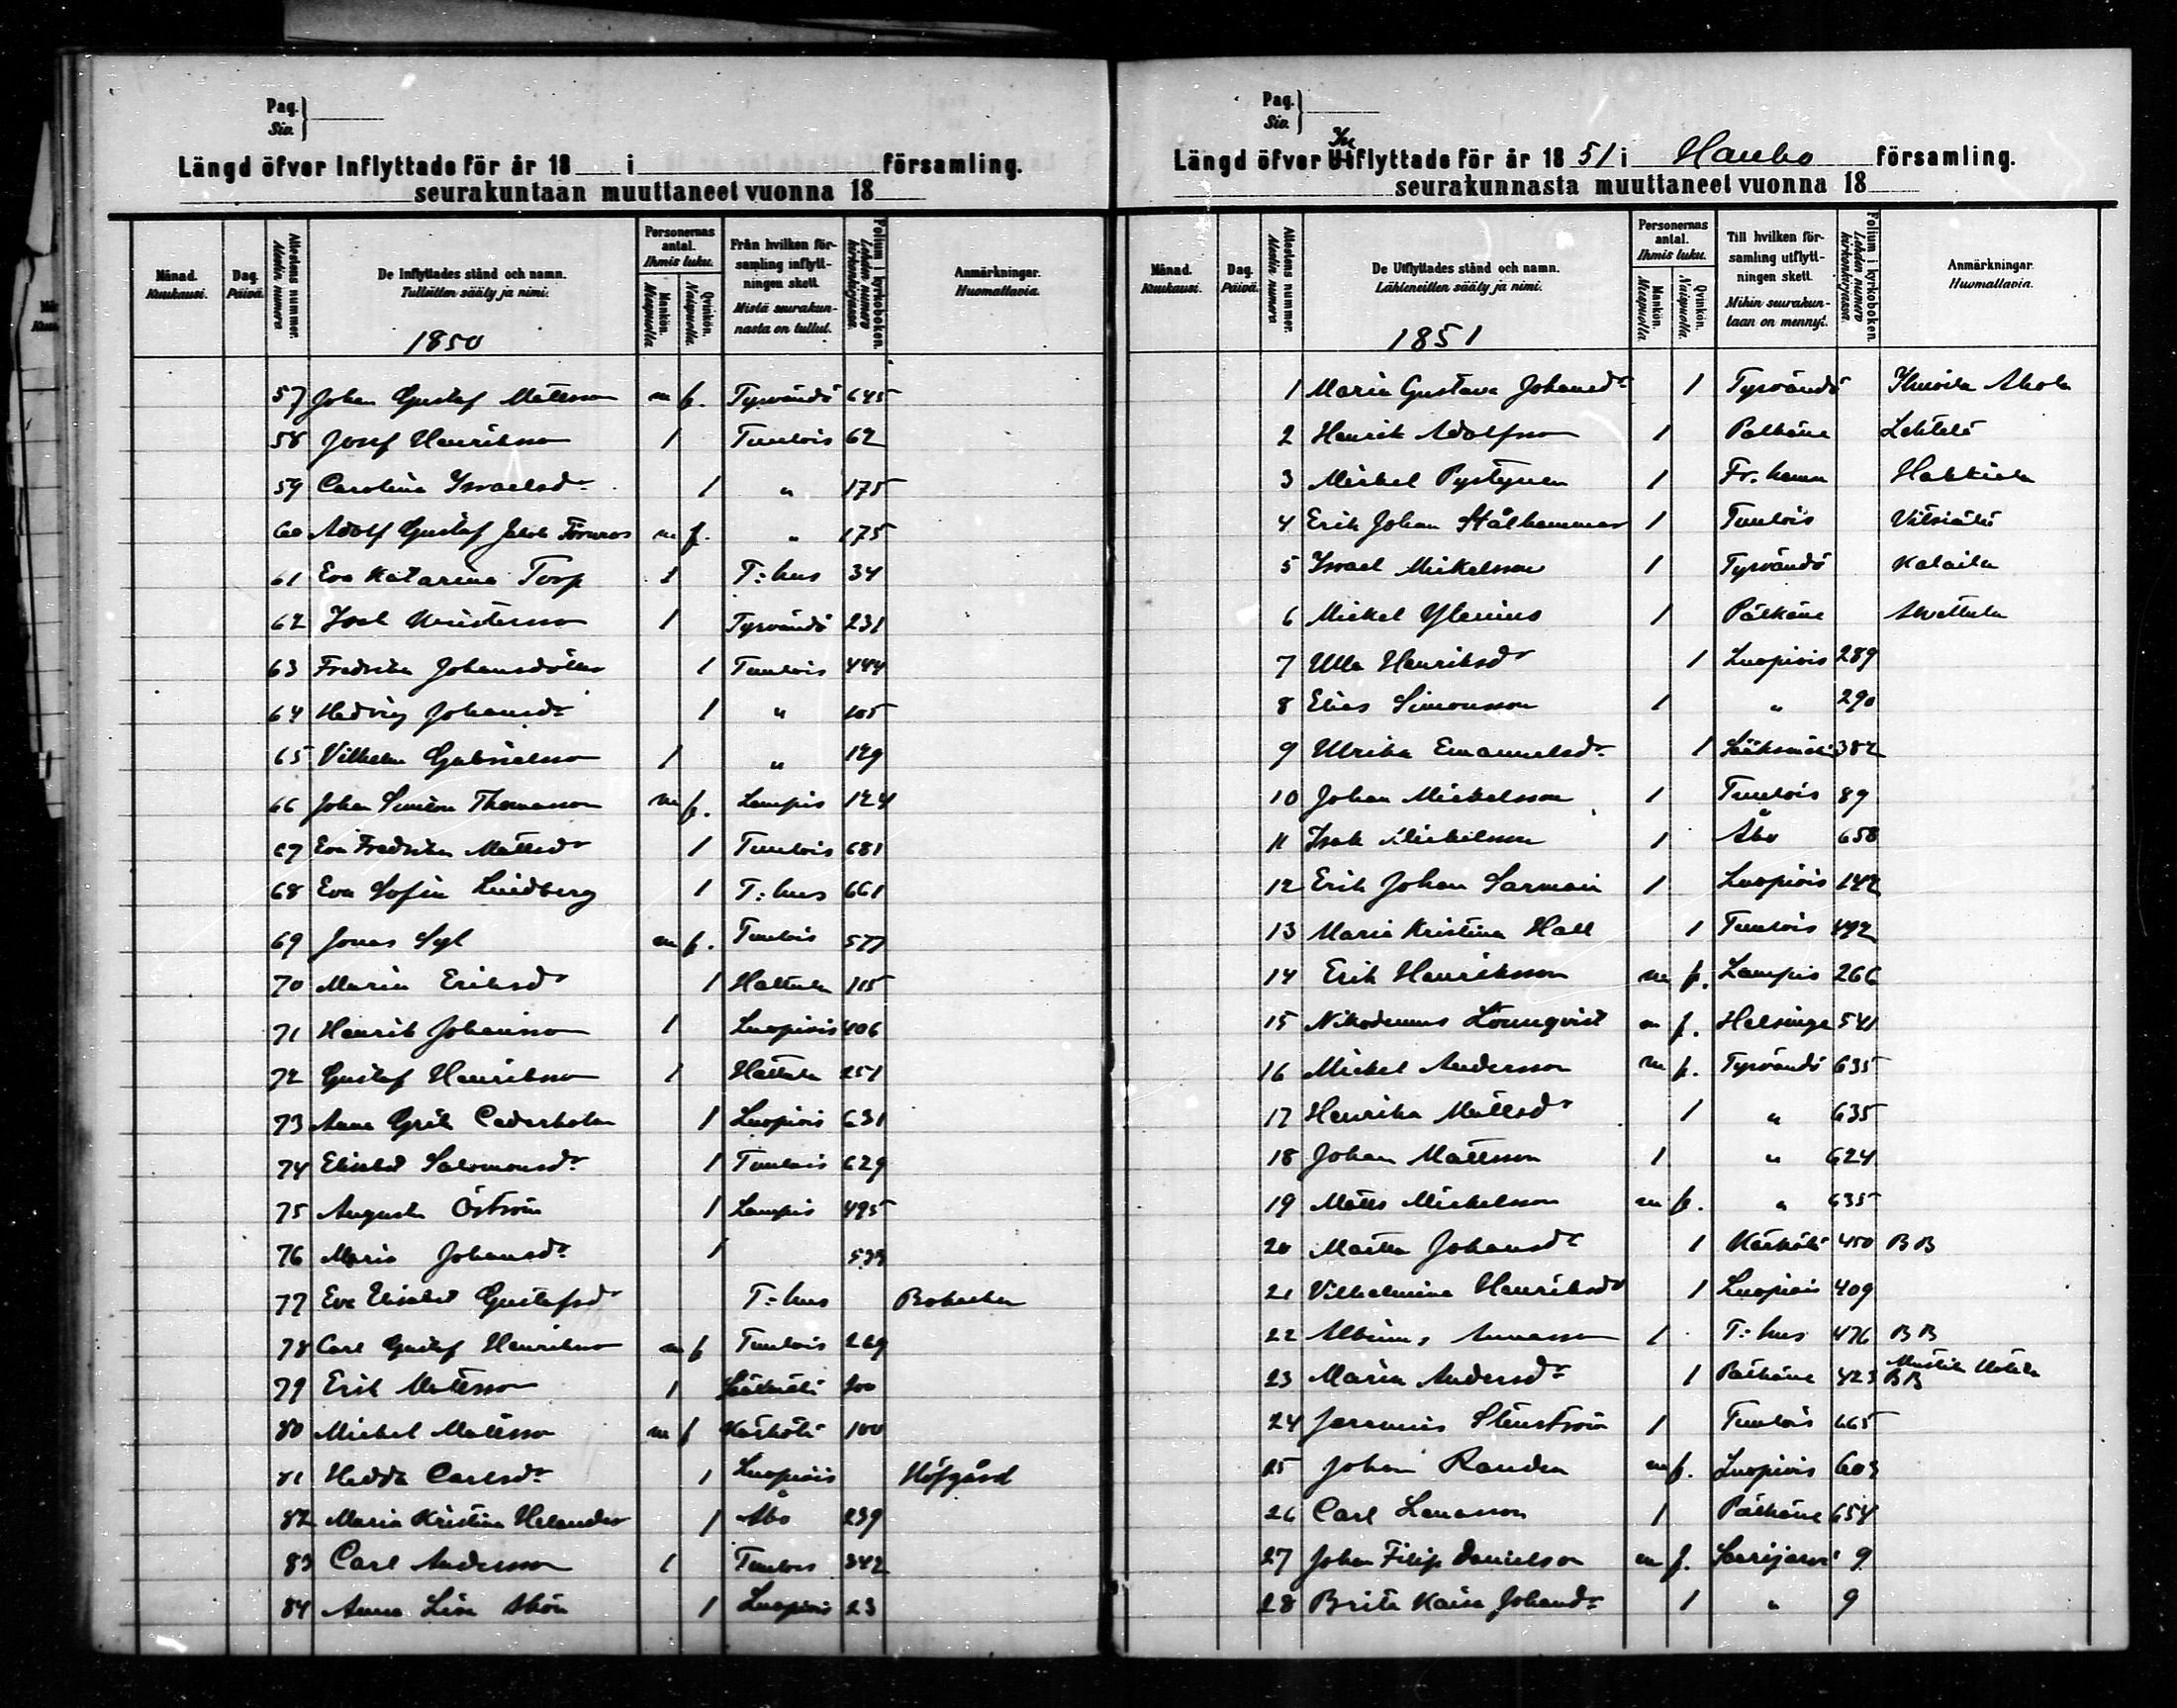 Pag.
Siv.
Längd öfver Inflyttade för år 18 i församling.
seurakuntaan muuttaneet vuonna 18
Månad. Kuukausi.
Dag. Päivä.
Attestens nummer. Nestin numero
De Inflyttades stånd och namn.
Tulleitten sääty ja nimi.
1850
Personernas antal. Ihmis luku.
Mankön. Miespuolia
Qvinkön. Naispuolia.
Från hvilken församling inflyttningen skett.
Mistä seurakunnasta on tullut.
Folium i kyrkoboken.
Lehden numero kirkonkirjassa.
Anmärkningar.
Huomattavia.
57 Johan Gustaf Mattsson m f. Tyrvändö 645
58 Josef Henriksson 1 Tuulois 62
59 Carolina Israelsdr 1 " 175
60 Adolf Gustaf Jakob Törnroos m f. " 175
61 Eva Katarina Torp 1 T:hus 34
62 Joel 1 Tyrvändö 231
63 Fredrika Johansdotter 1 Tuulois 444
64 Hedvig Johansdr 1 " 105
65 Vilhelm Gabrielsson 1 " 129
66 Johan Simeon Thomasson m f. Lampis 124
67 Eva Fredrika Mattsdr 1 Tuulois 681
68 Eva Sofia Lindberg 1 T:hus 661
69 Jonas Syl m f. Tuulois 577
70 Maria Eriksdr 1 Hattula 115
71 Henrik Johansson 1 Luopiois 406
72 Gustaf Henriksson 1 Hattula 251
73 Anna Greta Cederholm 1 Luopiois 631
74 Elisabet Salomonsdr 1 Tuulois 629
75 Augusta Öström 1 Lampis 495
76 Maria Johansdr 1 539
77 Eva Elisabet Gustafsdr T:hus
78 Carl Gustaf Henriksson m f Tuulois 269
79 Erik Mattsson 1 Sääksmäki 200
80 Mickel Mattsson m f Kärkölä 100
81 Hedda Carlsdr 1 Luopiois Höfgård
82 Maria Kristina Helander 1 Åbo 239
83 Carl Andersson 1 Tuulois 342
84 Anna Lisa Skön 1 Luopiois 23
Pag.
Siv.
In
Längd öfver Utflyttade för år 18 51 i Hauho församling.
seurakunnasta muuttaneet vuonna 18
Månad. Kuukausi.
Dag. Päivä.
Attestens nummer. Nestin numero
De Utflyttades stånd och namn.
Lähteneitten sääty ja nimi.
1851
Personernas antal. Ihmis luku.
Mankön. Miespuolia
Qvinkön. Naispuolia
Till hvilken församling utflyttningen skett.
Mihin seurakuntaan on mennyt.
Folium i kyrkoboken.
Lehden numero kirkonkirjassa.
Anmärkningar.
Huomattavia.
1 Maria Gustava Johansdr 1 Tyrvändö Ahola
2 Henrik Adolfsson 1 Pälkäne Lehtelä
3 Mickel Pystynen 1 Fr. hamn Hakkala
4 Erik Johan Stålhammar 1 Tuulois Vitsiälä
5 Israel Mickelsson 1 Tyrvändö Kalaila
6 Mickel Ylenius 1 Pälkäne
7 Ulla Henriksdr 1 Luopiois 289
8 Elias Simonsson 1 " 290
9 Ulrika Emanuelsdr 1 Sääksmäki 382
10 Johan Mickelsson 1 Tuulois 89
11 Isak Mickelsson 1 Åbo 658
12 Erik Johan Sarmain 1 Luopiois 142
13 Maria Kristina Hall 1 Tuulois 492
14 Erik Henriksson m f. Lampis 266
15 Nikodemus Lönnqvist m f. Helsinge 541
16 Mickel Andersson m f. Tyrvändö 635
17 Henrika Mattsdr 1 " 635
18 Johan Mattsson 1 " 624
19 Matts Mickelsson m f. " 635
20 Martta Johansdr 1 Kärkölä 450 BB
21 Vilhelmina Henriksdr 1 Luopiois 409
22 Albinus Annasson 1 T:hus 476 BB
23 Maria Andersdr 1 Pälkäne 423 BB
24 Jeremias Stenström 1 Tuulois 665
25 Johan Randen m f. Luopiois 603
26 Carl Lenasson 1 Pälkäne 654
27 Johan Filip Danielson m f. Saarijärvi 9
28 Brita Kaisa Johansdr 1 " 9